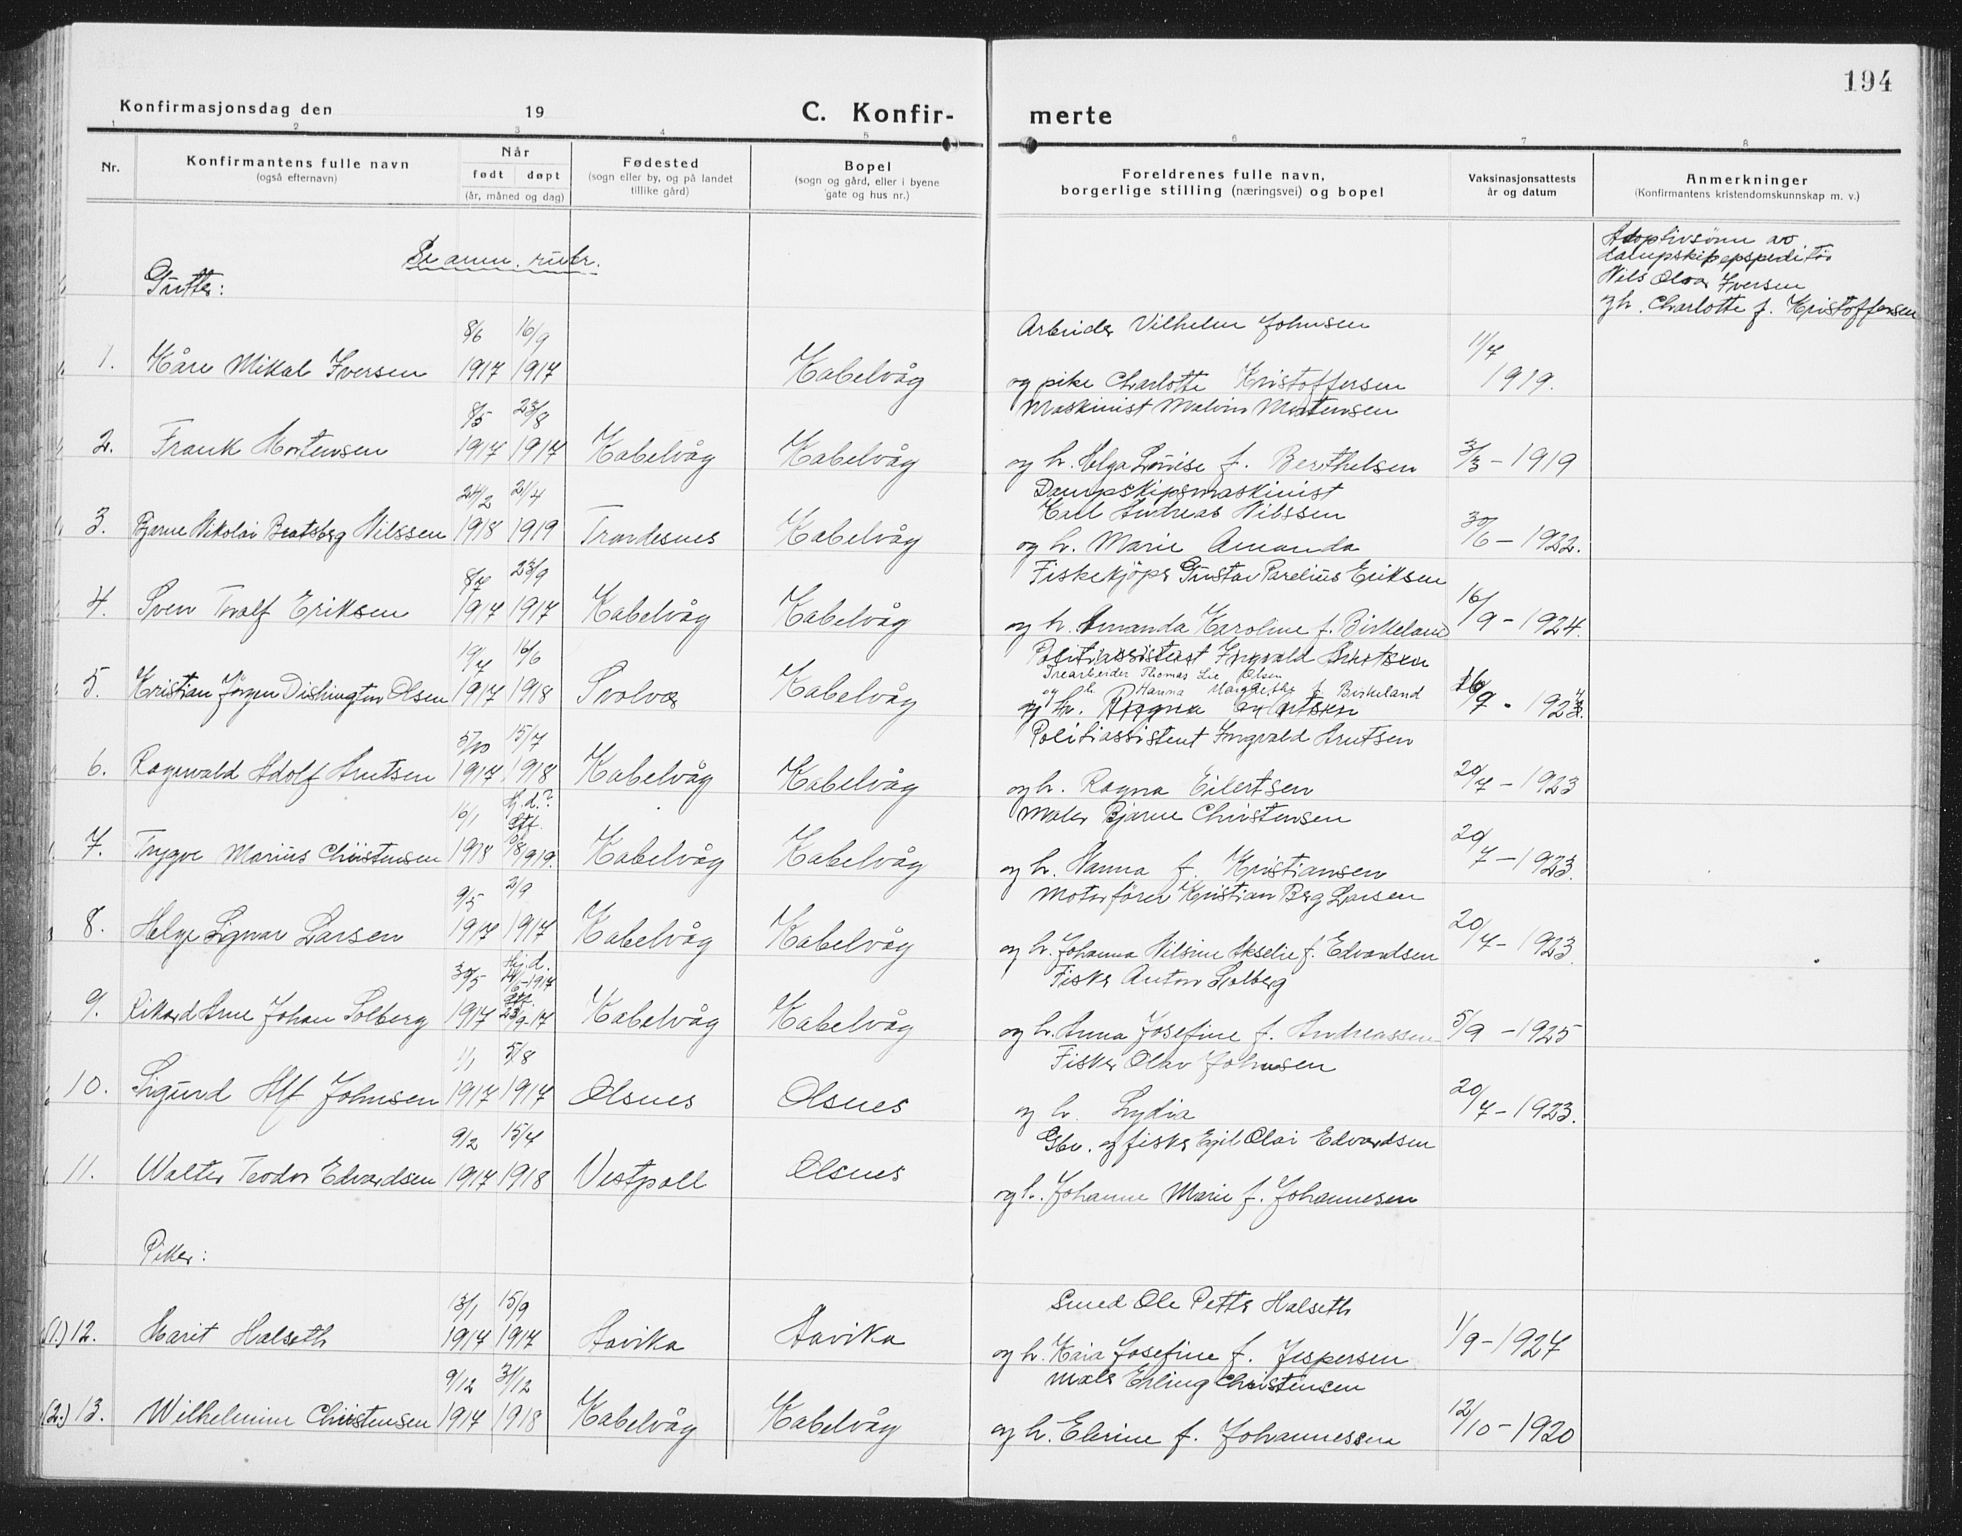 194
Konfirmasjonsdag den 19 C. Konfir- merte
1 2 3 4 5 6 7 8
Nr. Konfirmantens fulle navn (også efternavn) Når født døpt (år, måned og dag) Fødested (sogn eller by, og på landet tillike gård) Bopel (sogn og gård, eller i byene gate og hus nr.) Foreldrenes fulle navn, borgerlige stilling (næringsvei) og bopel Vaksinasjonsattests år og datum Anmerkninger (Konfirmantens kristendomskunnskap m. v.)
Se anm. rubr.
Adoptivsønn av
dampskipsekspeditør
Nils Olav Iversen
og h. Charlotte f. Kristoffersen
Gutter:
8/6 16/9 Arbeider Vilhelm Johnsen 11/4
1. Kåre Mikal Iversen 1917 1917 Kabelvåg og pike Charlotte Kristoffersen 1919.
8/5 23/8 Maskinist Malvin Mortensen
2. Frank Mortensen 1917 1917 Kabelvåg Kabelvåg og h. Helga Lovise f. Berthelsen 3/3 - 1919
24/2 21/4 Dampskipsmaskinist
Karl Andreas Nilssen
3. Bjarne Nikolai Bratsberg Nilssen 1918 1919 Trondenes Kabelvåg og h. Marie Amanda 30/6 - 1922.
8/7 23/9 Fiskekjøper Gustav Parelius Eriksen
4. Sven Tralf Eriksen 1917 1917 Kabelvåg Kabelvåg og h. Amanda Karoline f. Birkeland 16/9 - 1924.
19/7 16/6 Politiassistent Ingvald Arntsen
Trearbeider Thomas Lie Olsen
og h. Hanna Margrethe f. Birkeland
5. Kristian Jörgen Dishington Olsen 1917 1918 Svolvær Kabelvåg og h. Ragna Eilertsen 16/9 - 1924.
5/10 15/7 Politiassistent Ingvald Arntsen
6. Ragnvald Adolf Arntsen 1917 1918 Kabelvåg Kabelvåg og h. Ragna Eilertsen 20/7 - 1923
16/1 Hj.d.? Stf. Maler Bjarne Christensen
7. Trygve Marius Christensen 1918 10/8 1919. Kabelvåg Kabelvåg og h. Hanna f. Kristiansen 20/7 - 1923.
9/5 2/9 Motorfører Kristian Berg Larsen
8. Helge Sigvar Larsen 1917 1917 Kabelvåg Kabelvåg og h. Johanna Nilsine Akselie f. Edvardsen 20/7 - 1923.
30/5 Hj.d. 14/6-1917 Fisker Anton Solberg
9. Rikard Arne Johan Solberg 1917 Stf. 23/9-17 Kabelvåg Kabelvåg og h. Anna Josefine f. Andreassen 5/9 - 1925
1/1 5/8 Fisker Olav Johnsen
10. Sigurd Alf Johnsen 1917 1917 Olsnes Olsnes og h. Lydia 20/7 - 1923.
9/2 15/4 Gbr. og fisker Egil Olai Edvardsen
11. Walter Teodor Edvardsen 1917 1918 Vestpoll Olsnes og h. Johanne Marie f. Johannesen
Piker:
13/1 15/9 Smed Ole Petter Halseth
(1.) 12. Marit Halseth 1917 1917 Aavika Aavika og h. Kaia Josefine f. Jespersen 1/9 - 1927
9/12 31/12 Maler Erling Christensen
(2.) 13. Wilhelmine Christensen 1917 1918 Kabelvåg Kabelvåg og h. Elerine f. Johannessen 12/10 - 1920